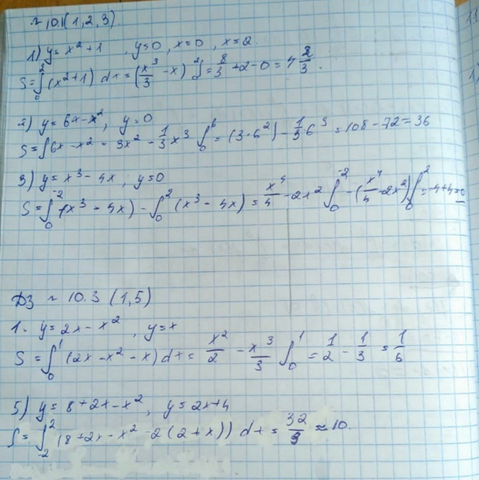 № 10.1 (1,2,3)
1) y = x² + 1 , y = 0 , x = 0 , x = 2.
S = ∫₀² (x² + 1) dx = (x³/3 - x) ∫₀² = 8/3 + 2 - 0 = 4 2/3.
2) y = 6x - x² , y = 0
S = ∫ 6x - x² = 3x² - 1/3 x³ ∫₀⁶ = (3·6²) - 1/3 6³ = 108 - 72 = 36
3) y = x³ - 4x , y = 0
S = ∫₀⁻² (x³ - 4x) - ∫₀² (x³ - 4x) = x⁴/4 - 2x² ∫₀⁻² - (x⁴/4 - 2x²) ∫₀² = -4 + 4 = 0
ДЗ № 10.3 (1,5)
1. y = 2x - x² , y = x
S = ∫₀¹ (2x - x² - x) dx = x²/2 - x³/3 ∫₀¹ = 1/2 - 1/3 = 1/6
5) y = 8 + 2x - x² , y = 2x + 4
S = ∫₋₂² (8 + 2x - x² - 2(2 + x)) dx = 32/3 ≈ 10.